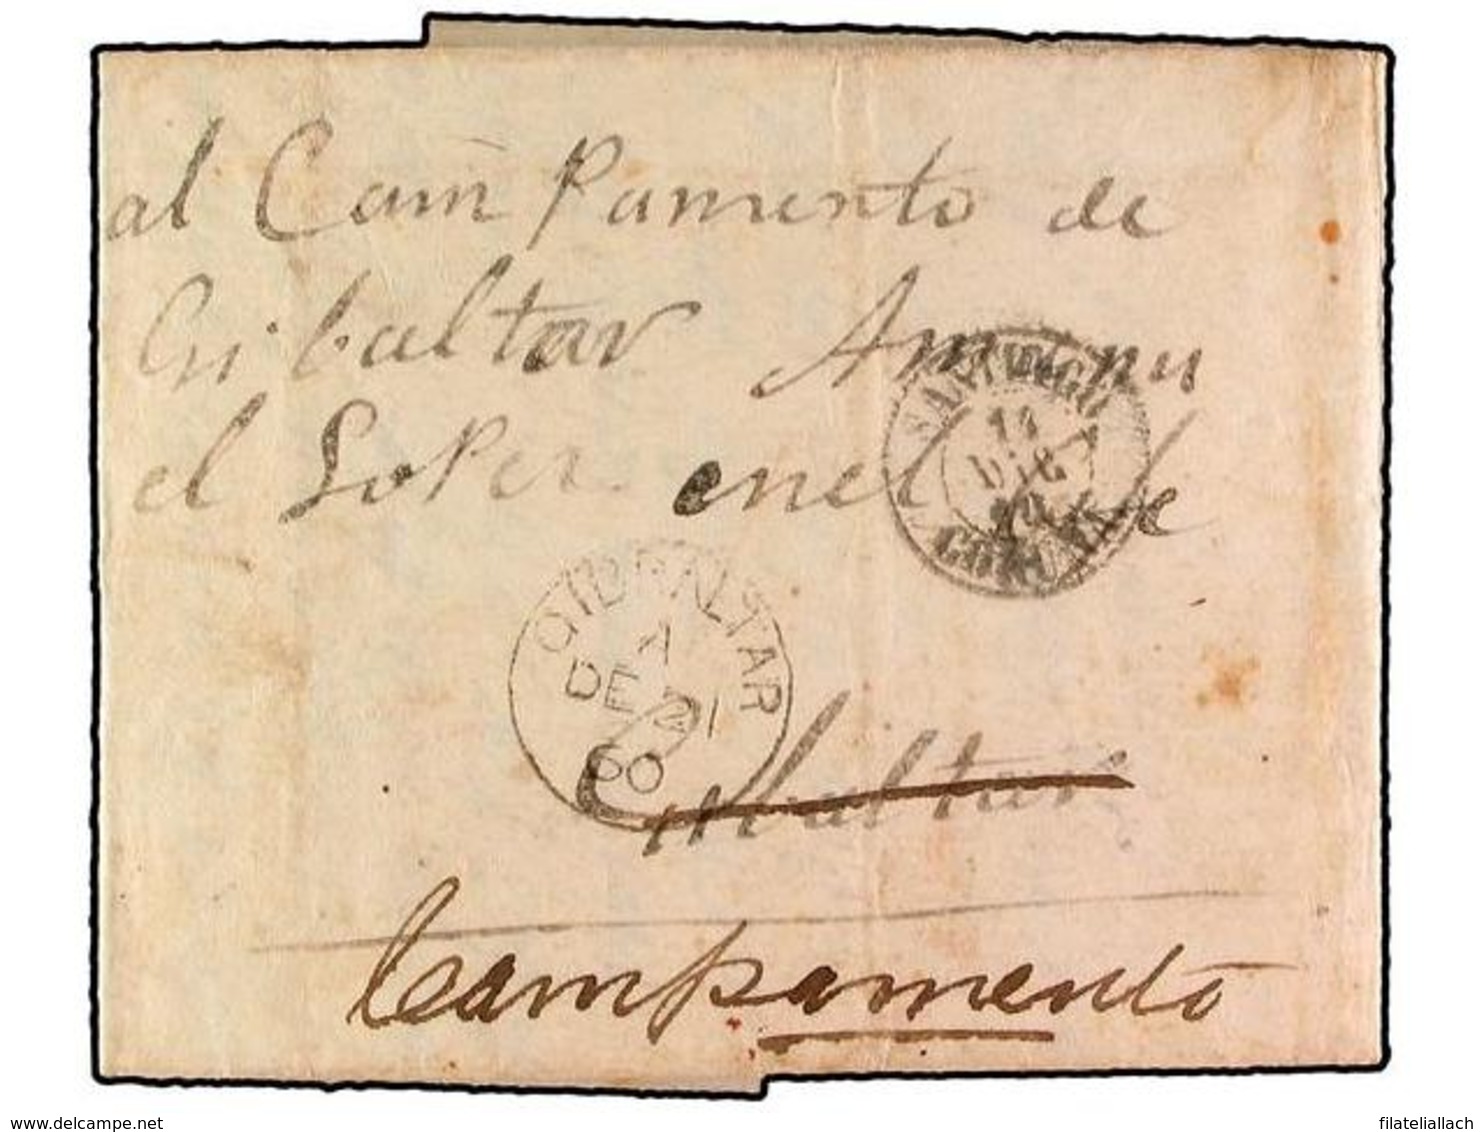 al Campamento de
Gibraltar
el en el de
SANTIAGO
14
DIC
CORUÑA
GIBRALTAR
A
DE 21
60
Gibraltar
Campamento
www.delcampe.net
filateliallach